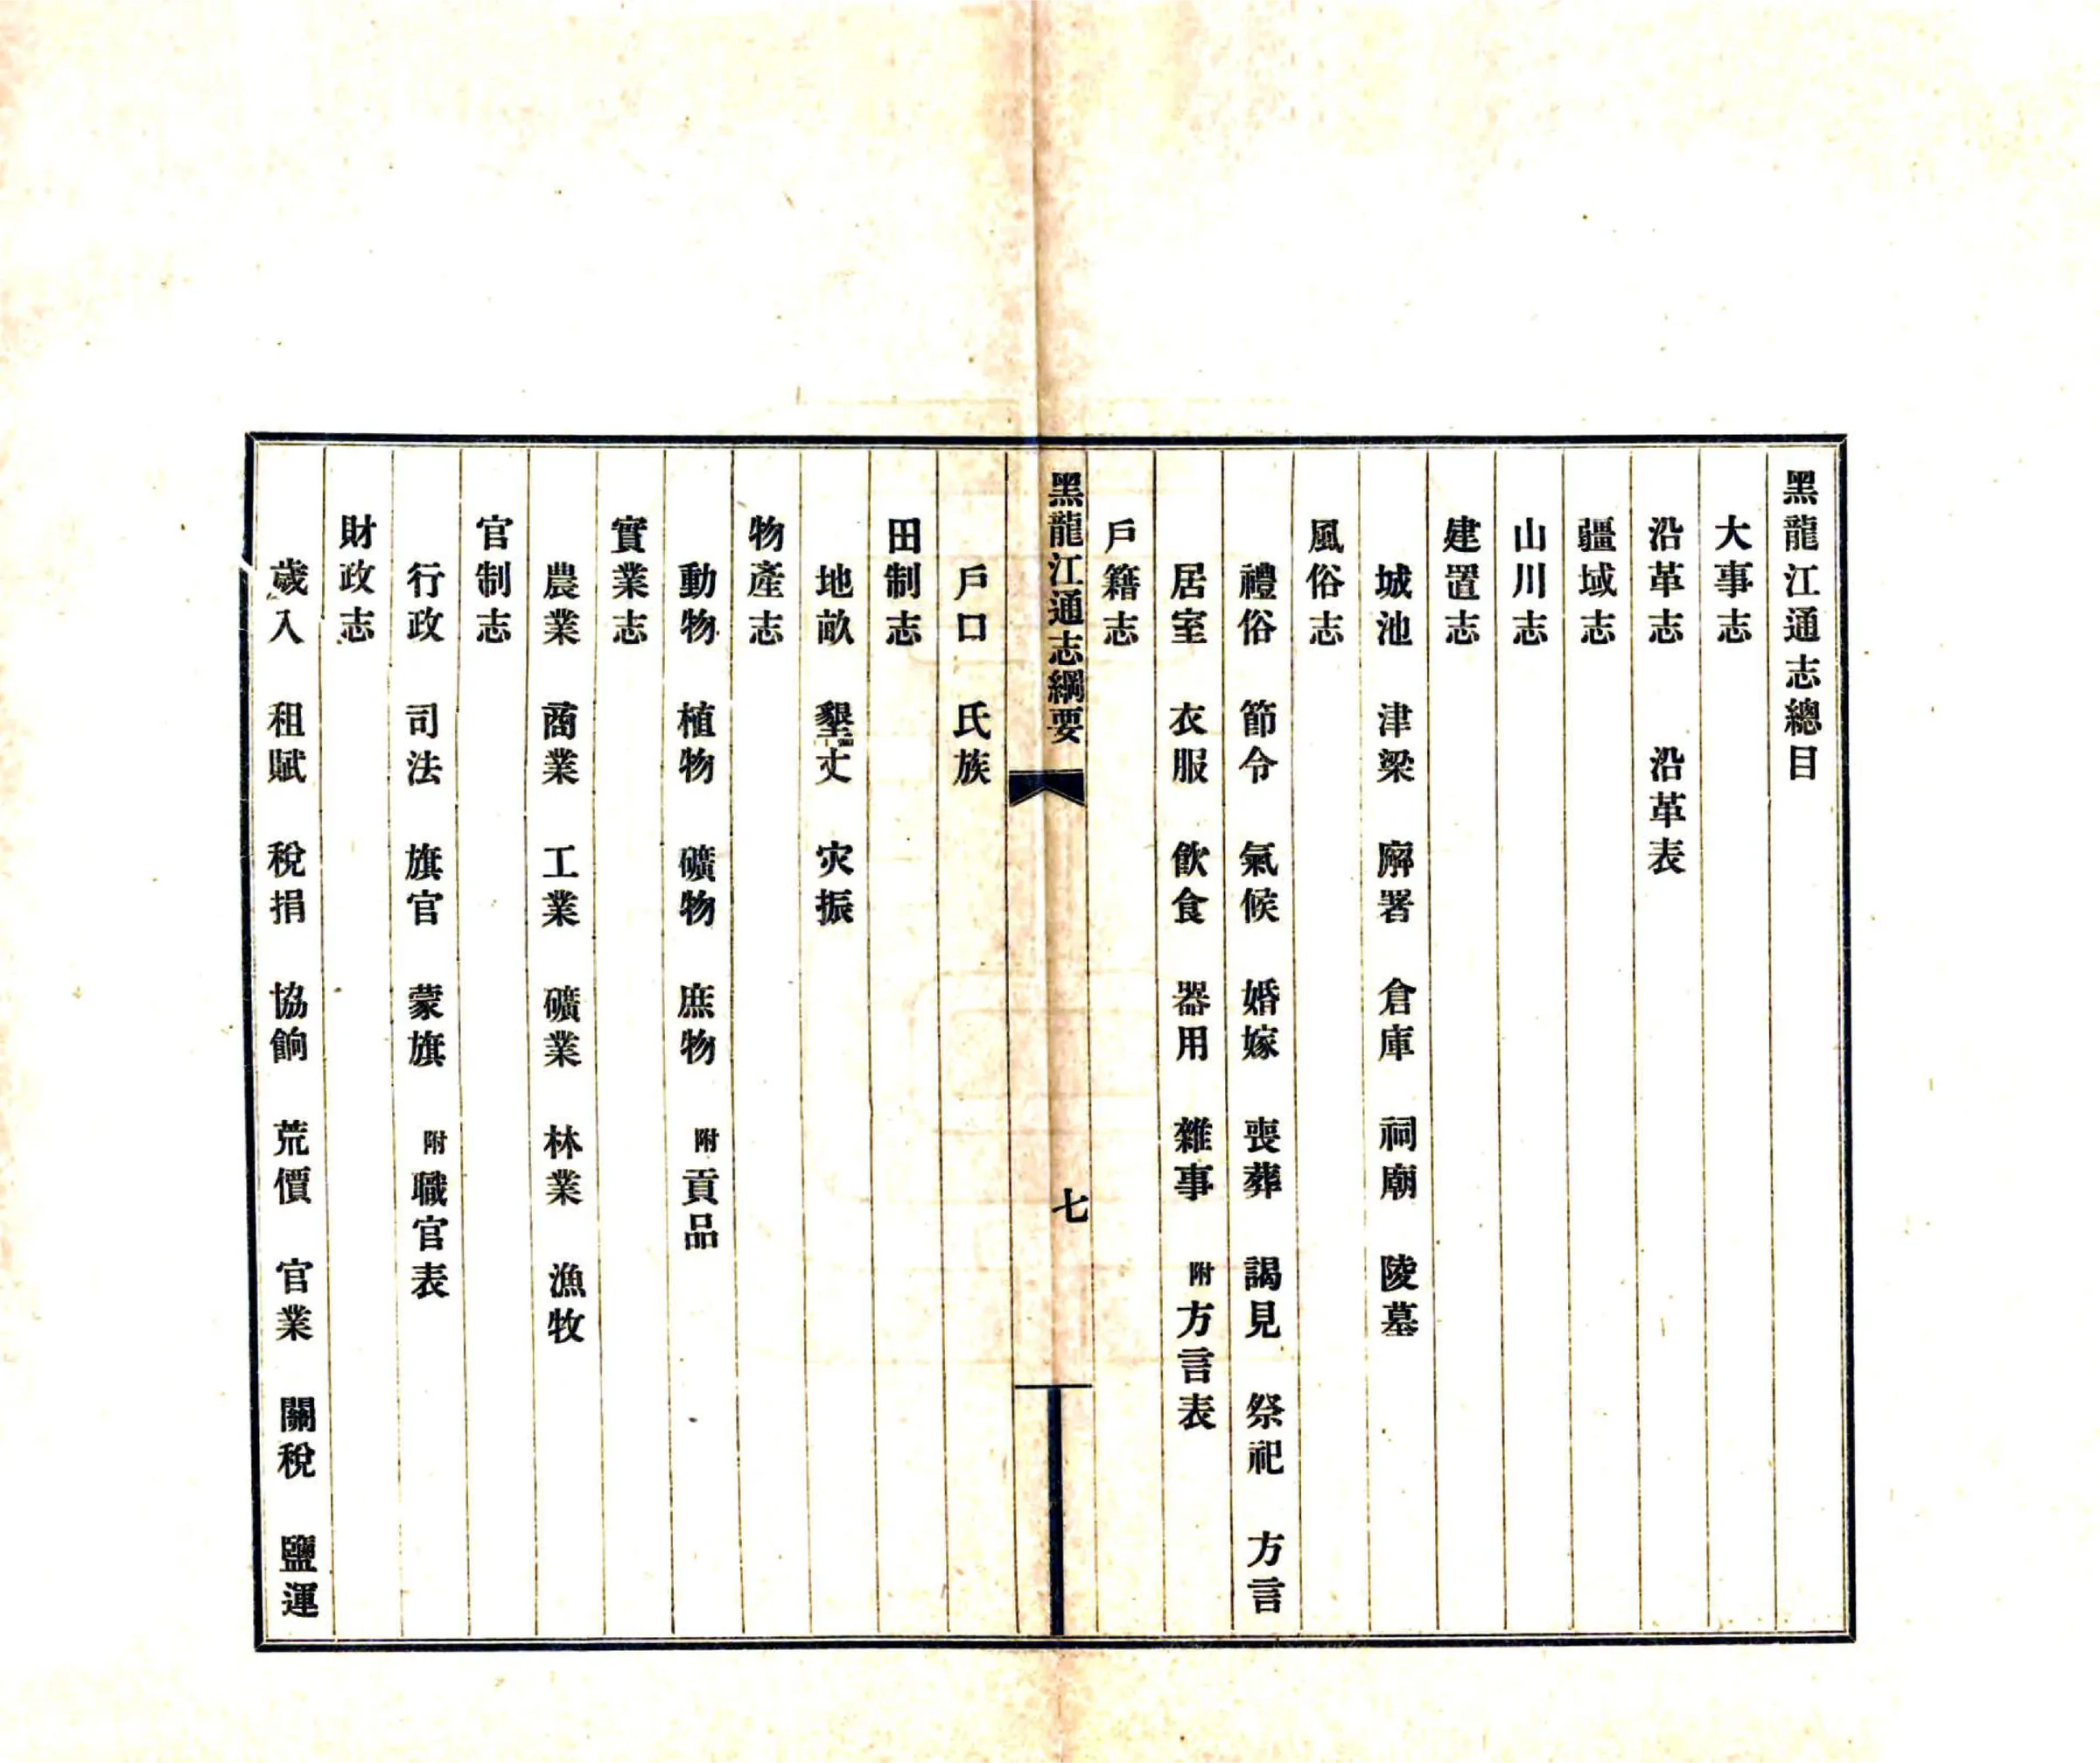 黑龍江通志總目
大事志
沿革志　沿革表
疆域志
山川志
建置志
城池　津梁　廨署　倉庫　祠廟　陵墓
風俗志
禮俗　節令　氣候　婚嫁　喪葬　謁見　祭祀　方言
居室　衣服　飲食　器用　雜事　附方言表
戶籍志
黑龍江通志綱要
七
戶口　氏族
田制志
地畝　墾丈　灾振
物產志
動物　植物　礦物　庶物　附貢品
實業志
農業　商業　工業　礦業　林業　漁牧
官制志
行政　司法　旗官　蒙旗　附職官表
財政志
歲入　租賦　稅捐　協餉　荒價　官業　關稅　鹽運